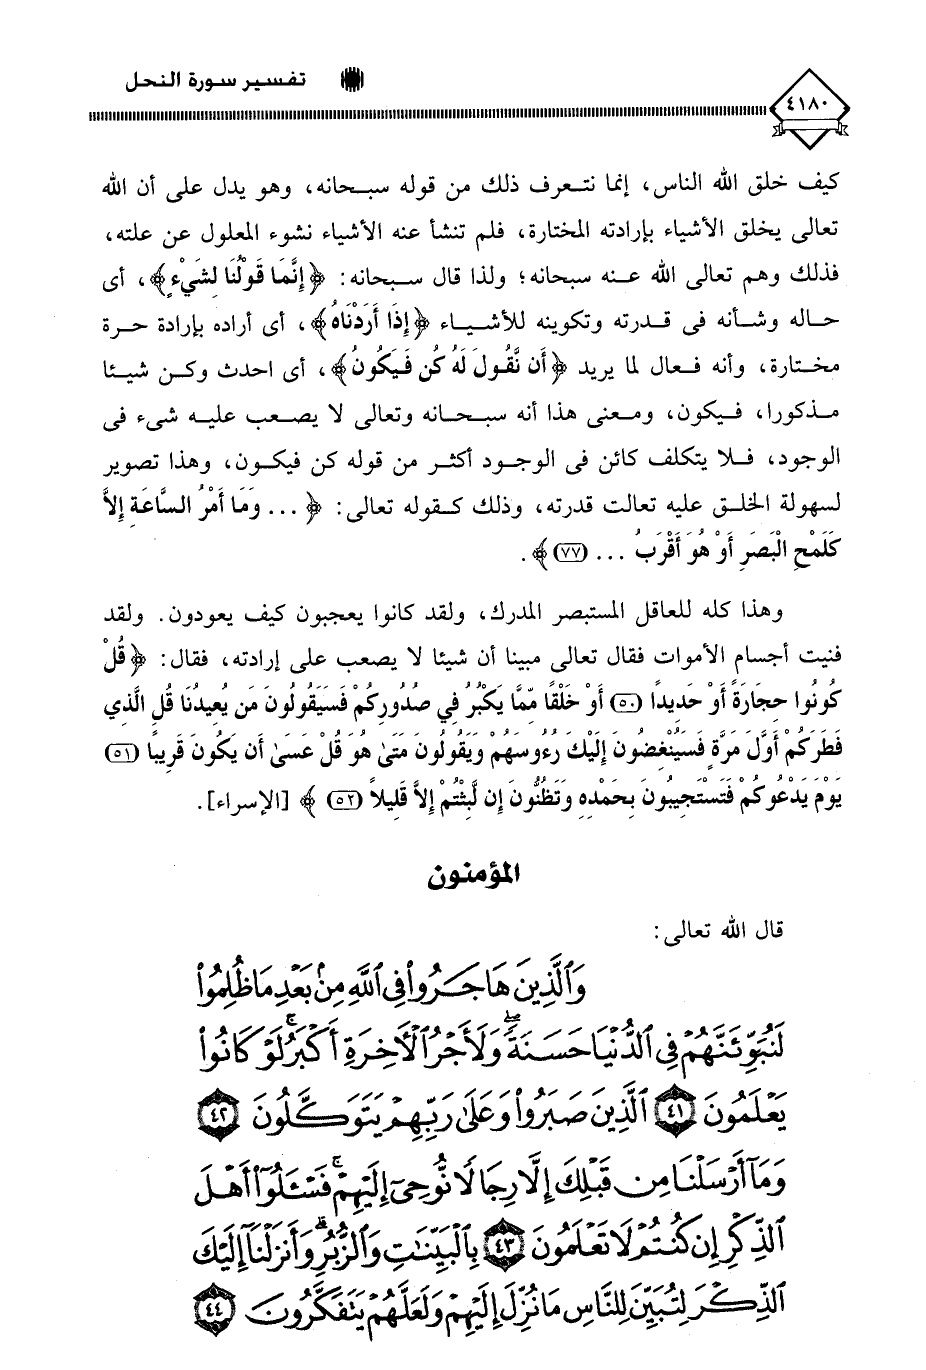 تفسير سورة النحل
٤١٨٠
كيف خلق الله الناس، إنما نتعرف ذلك من قوله سبحانه، وهو يدل على أن الله
تعالى يخلق الأشياء بإرادته المختارة، فلم تنشأ عنه الأشياء نشوء المعلول عن علته،
فذلك وهم تعالى الله عنه سبحانه؛ ولذا قال سبحانه: ﴿إِنَّمَا قَوْلُنَا لِشَيْءٍ﴾، أى
حاله وشأنه فى قدرته وتكوينه للأشياء ﴿إِذَا أَرَدْنَاهُ﴾، أى أراده بإرادة حرة
مختارة، وأنه فعال لما يريد ﴿أَن نَّقُولَ لَهُ كُن فَيَكُونُ﴾، أى احدث وكن شيئا
مذكورا، فيكون، ومعنى هذا أنه سبحانه وتعالى لا يصعب عليه شىء فى
الوجود، فلا يتكلف كائن فى الوجود أكثر من قوله كن فيكون، وهذا تصوير
لسهولة الخلق عليه تعالت قدرته، وذلك كقوله تعالى: ﴿ ... وَمَا أَمْرُ السَّاعَةِ إِلاَّ
كَلَمْحِ الْبَصَرِ أَوْ هُوَ أَقْرَبُ ... (٧٧)﴾.
وهذا كله للعاقل المستبصر المدرك، ولقد كانوا يعجبون كيف يعودون. ولقد
فنيت أجسام الأموات فقال تعالى مبينا أن شيئا لا يصعب على إرادته، فقال: ﴿قُلْ
كُونُوا حِجَارَةً أَوْ حَدِيدًا (٥٠) أَوْ خَلْقًا مِّمَّا يَكْبُرُ فِي صُدُورِكُمْ فَسَيَقُولُونَ مَن يُعِيدُنَا قُلِ الَّذِي
فَطَرَكُمْ أَوَّلَ مَرَّةٍ فَسَيُنْغِضُونَ إِلَيْكَ رُءُوسَهُمْ وَيَقُولُونَ مَتَىٰ هُوَ قُلْ عَسَىٰ أَن يَكُونَ قَرِيبًا (٥١)
يَوْمَ يَدْعُوكُمْ فَتَسْتَجِيبُونَ بِحَمْدِهِ وَتَظُنُّونَ إِن لَّبِثْتُمْ إِلاَّ قَلِيلاً (٥٢) ﴾ [الإسراء].
المؤمنون
قال الله تعالى:
وَٱلَّذِينَ هَاجَرُوا۟ فِى ٱللَّهِ مِنۢ بَعْدِ مَا ظُلِمُوا۟
لَنُبَوِّئَنَّهُمْ فِى ٱلدُّنْيَا حَسَنَةً ۖ وَلَأَجْرُ ٱلْـَٔاخِرَةِ أَكْبَرُ ۚ لَوْ كَانُوا۟
يَعْلَمُونَ ٤١ ٱلَّذِينَ صَبَرُوا۟ وَعَلَىٰ رَبِّهِمْ يَتَوَكَّلُونَ ٤٢
وَمَآ أَرْسَلْنَا مِن قَبْلِكَ إِلَّا رِجَالًا نُّوحِىٓ إِلَيْهِمْ ۚ فَسْـَٔلُوٓا۟ أَهْلَ
ٱلذِّكْرِ إِن كُنتُمْ لَا تَعْلَمُونَ ٤٣ بِٱلْبَيِّنَـٰتِ وَٱلزُّبُرِ ۗ وَأَنزَلْنَآ إِلَيْكَ
ٱلذِّكْرَ لِتُبَيِّنَ لِلنَّاسِ مَا نُزِّلَ إِلَيْهِمْ وَلَعَلَّهُمْ يَتَفَكَّرُونَ ٤٤